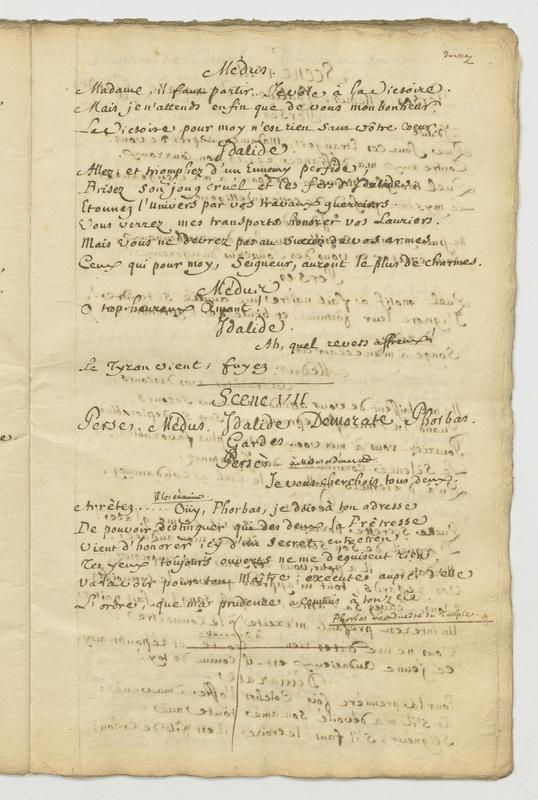 Médus.
Madame, il faut partir. Je vole à la Victoire.
Mais je n'attends enfin que de vous mon bonheur
La Victoire pour moy n'est rien sans vôtre Coeur.
Idalide.
Allez; et triomphez d'un Ennemy perfide,
Brisez son joug cruel et les fers d'Idalide.
Etonnez l'Univers par vos travaux guerriers.
Vous verrez mes transports honorer vos Lauriers.
Mais vous ne devrez pas au succès de vos armes
Ceux qui pour moy, Seigneur, auront le plus de charmes.
Médus.
O trop heureux Amant!
Idalide.
Ah, quel revers affreux!
Le Tyran vient; fuyez.
Scene VII
Perses. Médus. Idalide. Démorate. Phorbas.
Gardes
Persès à Médus et Démorate
Je vous cherchois tous deux;
Arrêtez..... Ouy, Phorbas, je dois à ton adresse
De pouvoir distinguer qui des deux la Prêtresse
Vient d'honorer icy d'un secret entretien;
Tes yeux toujours ouverts ne me déguisent rien,
va la voir pour ton Maître; execute auprès d'elle
L'ordre, que ma prudence a commis à ton zele
Phorbas du Temple.